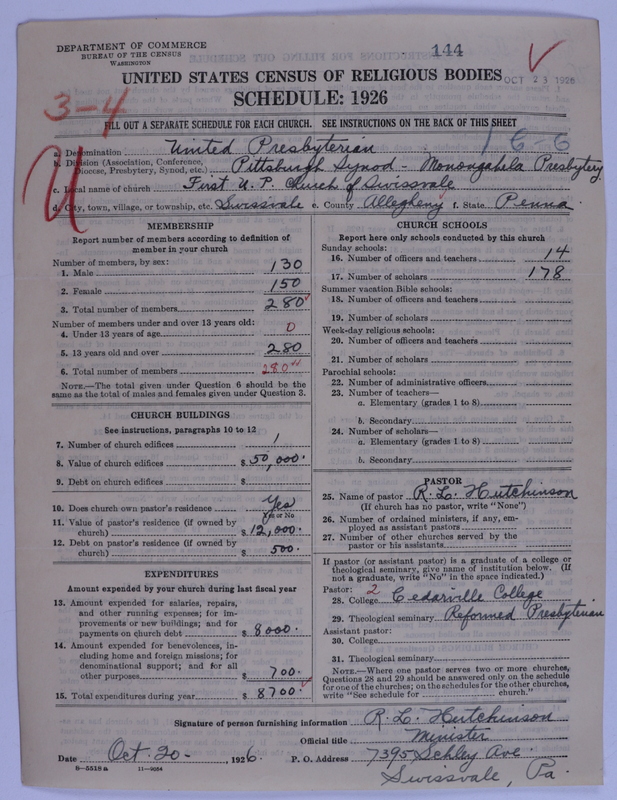 DEPARTMENT OF COMMERCE
BUREAU OF THE CENSUS
WASHINGTON
144
UNITED STATES CENSUS OF RELIGIOUS BODIES
OCT 23 1926
SCHEDULE: 1926
3-4
FILL OUT A SEPARATE SCHEDULE FOR EACH CHURCH. SEE INSTRUCTIONS ON THE BACK OF THIS SHEET
U
16-6
a. Denomination United Presbyterian
b. Division (Association, Conference, Diocese, Presbytery, Synod, etc.) Pittsburgh Synod - Monongahela Presbytery
c. Local name of church First U. P. Church of Swissvale
d. City, town, village, or township, etc. Swissvale e. County Allegheny f. State Penna.
MEMBERSHIP
Report number of members according to definition of
member in your church
Number of members, by sex:
1. Male 130
2. Female 150
3. Total number of members 280
Number of members under and over 13 years old:
4. Under 13 years of age 0
5. 13 years old and over 280
6. Total number of members 280
NOTE.—The total given under Question 6 should be the
same as the total of males and females given under Question 3.
CHURCH BUILDINGS
See instructions, paragraphs 10 to 12
7. Number of church edifices 1
8. Value of church edifices $ 50,000.
9. Debt on church edifices $
10. Does church own pastor's residence Yes
Yes or No
11. Value of pastor's residence (if owned by
church) $ 12,000.
12. Debt on pastor's residence (if owned by
church) $ 500.
EXPENDITURES
Amount expended by your church during last fiscal year
13. Amount expended for salaries, repairs,
and other running expenses; for im-
provements or new buildings; and for
payments on church debt $ 8000.
14. Amount expended for benevolences, in-
cluding home and foreign missions; for
denominational support; and for all
other purposes $ 700.
15. Total expenditures during year $ 8700.
CHURCH SCHOOLS
Report here only schools conducted by this church
Sunday schools:
16. Number of officers and teachers 14
17. Number of scholars 178
Summer vacation Bible schools:
18. Number of officers and teachers
19. Number of scholars
Week-day religious schools:
20. Number of officers and teachers
21. Number of scholars
Parochial schools:
22. Number of administrative officers
23. Number of teachers—
a. Elementary (grades 1 to 8)
b. Secondary
24. Number of scholars—
a. Elementary (grades 1 to 8)
b. Secondary
PASTOR
25. Name of pastor R. L. Hutchinson
(If church has no pastor, write "None")
26. Number of ordained ministers, if any, em-
ployed as assistant pastors
27. Number of other churches served by the
pastor or his assistants
If pastor (or assistant pastor) is a graduate of a college or
theological seminary, give name of institution below. (If
not a graduate, write "No" in the space indicated.)
Pastor: 2
28. College Cedarville College
29. Theological seminary Reformed Presbyterian
Assistant pastor:
30. College
31. Theological seminary
NOTE.—Where one pastor serves two or more churches,
Questions 28 and 29 should be answered only on the schedule
for one of the churches; on the schedules for the other churches,
write "See schedule for church."
Signature of person furnishing information R. L. Hutchinson
Official title Minister
Date Oct. 20, 1926. P. O. Address 7395 Schley Ave.
8-5518a 11-9064
Swissvale, Pa.